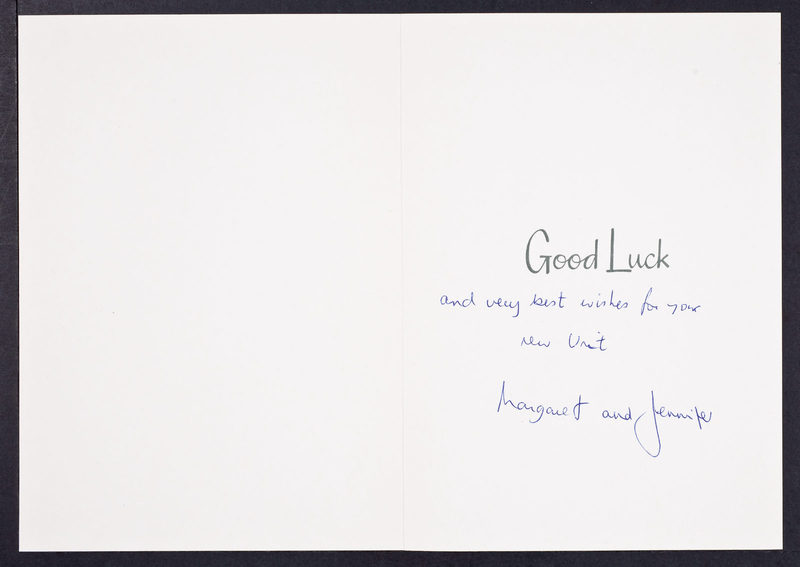 Good Luck
and very best wishes for your
new Unit
Margaret and Jennifer